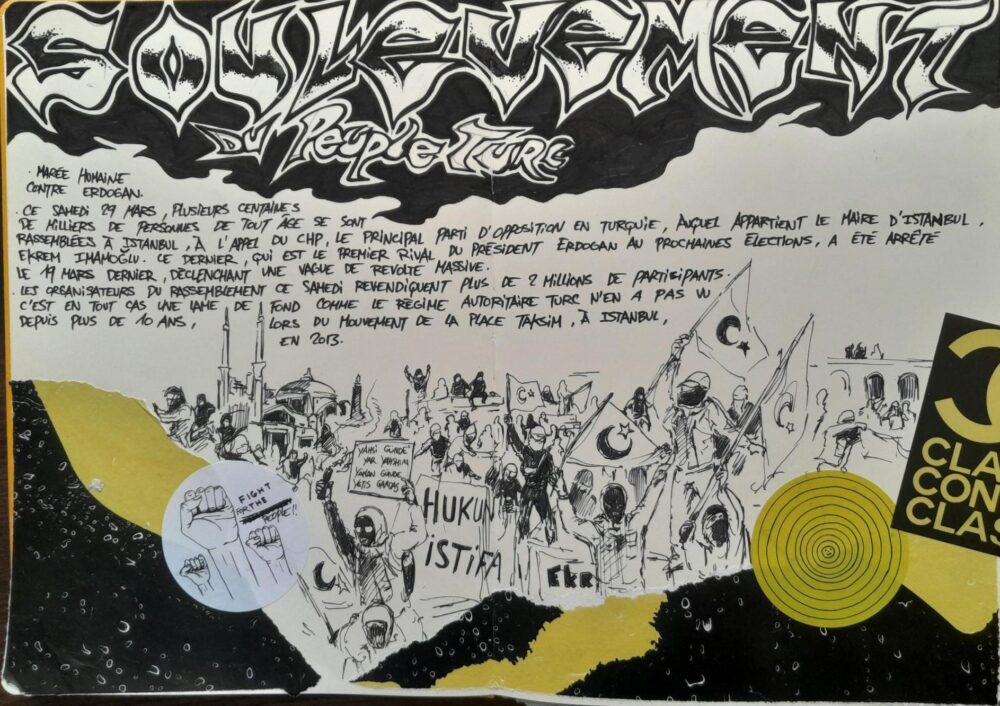 SOULEVEMENT
DU PEUPLE TURC
. MARÉE HUMAINE
CONTRE ERDOGAN.
. CE SAMEDI 29 MARS, PLUSIEURS CENTAINES
DE MILLIERS DE PERSONNES DE TOUT ÂGE SE SONT
RASSEMBLÉES À ISTANBUL, À L'APPEL DU CHP, LE PRINCIPAL PARTI D'OPPOSITION EN TURQUIE, AUQUEL APPARTIENT LE MAIRE D'ISTANBUL.
EKREM IMAMOGLU. CE DERNIER, QUI EST LE PREMIER RIVAL DU PRÉSIDENT ERDOGAN AU PROCHAINES ÉLECTIONS, A ÉTÉ ARRÊTÉ
LE 19 MARS DERNIER, DÉCLENCHANT UNE VAGUE DE REVOLTE MASSIVE.
. LES ORGANISATEURS DU RASSEMBLEMENT CE SAMEDI REVENDIQUENT PLUS DE 2 MILLIONS DE PARTICIPANTS.
C'EST EN TOUT CAS UNE LAME DE FOND COMME LE RÉGIME AUTORITAIRE TURC N'EN A PAS VU
DEPUIS PLUS DE 10 ANS, LORS DU MOUVEMENT DE LA PLACE TAKSIM, À ISTANBUL,
EN 2013.
GÜNDE
YAR
GÜNDE
HUKUN
İSTİFA
EKR
FIGHT
FOR THE
PEOPLE!!
CLA
CON
CLAS